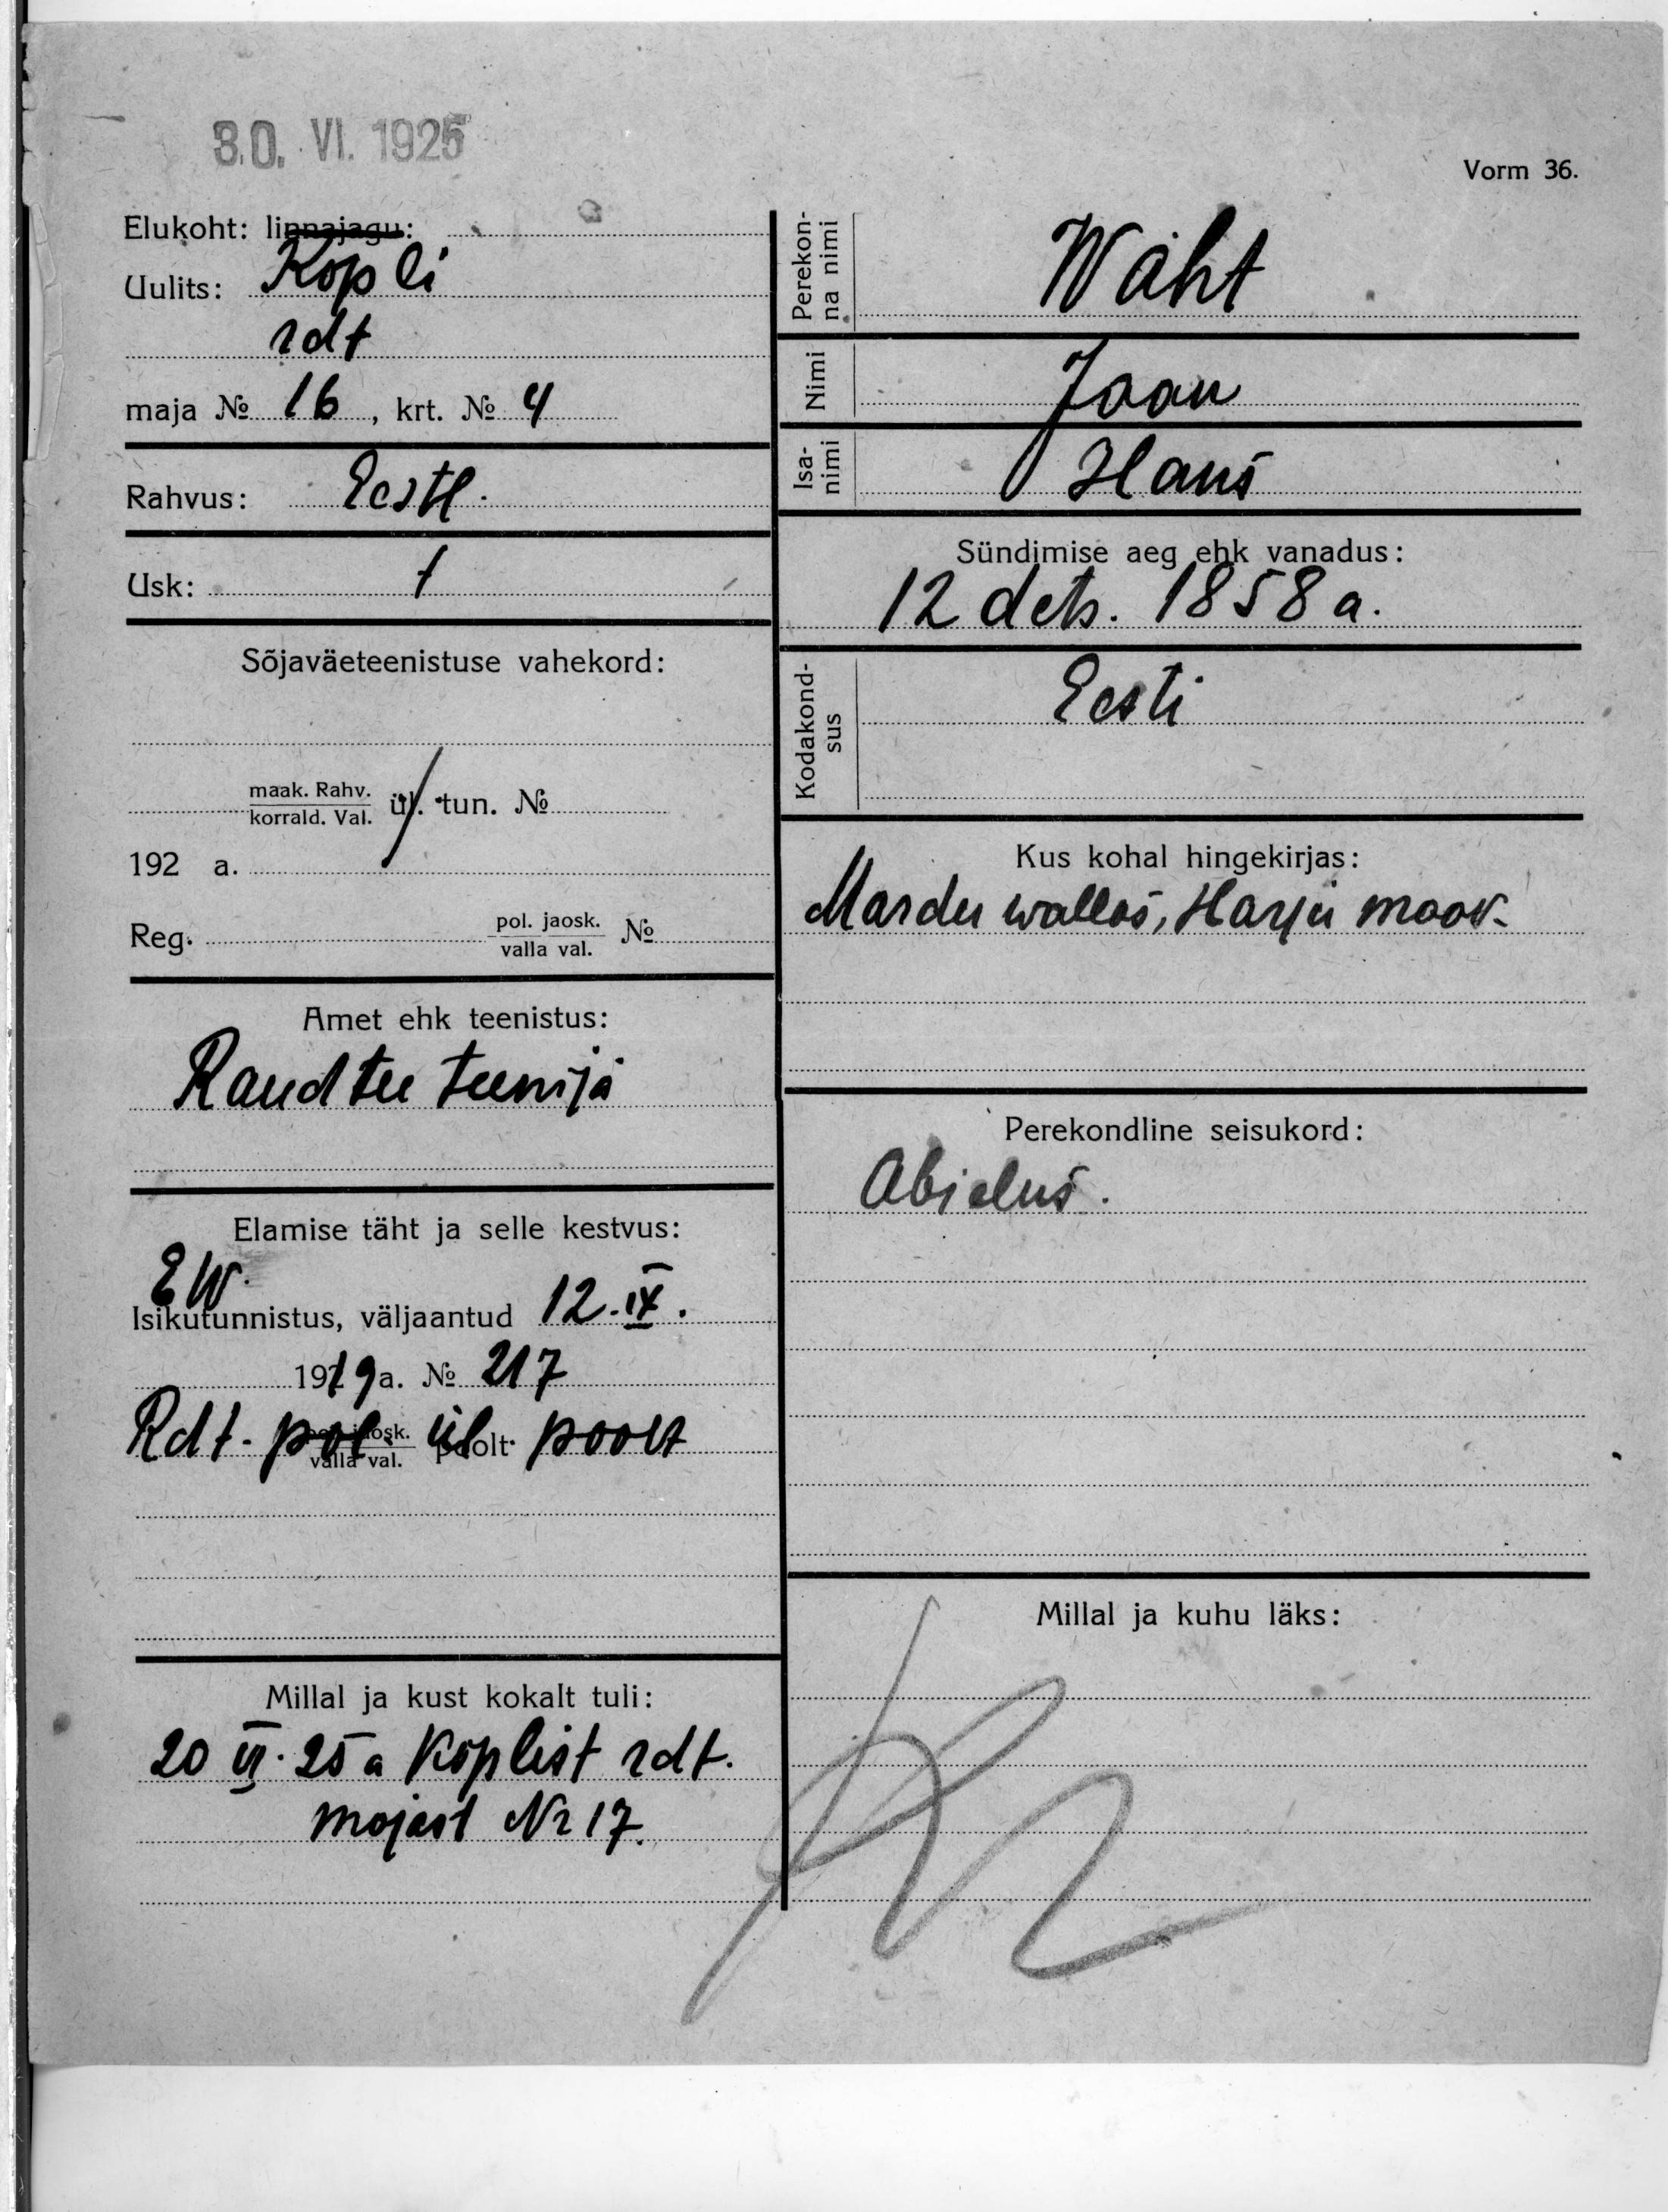 30. VI. 1925
Vorm 36.
Elukoht: linnajagu:
Uulits: Kopli
rdt
maja № 16, krt. № 4
Rahvus: Eestl.
Usk:
Sõjaväeteenistuse vahekord:
maak. Rahv.
korrald. Val. ül. tun. №
192 a.
Reg. pol. jaosk.
valla val. №
Amet ehk teenistus:
Raudtee teenija
Elamise täht ja selle kestvus:
EW.
Isikutunnistus, väljaantud 12. IX.
1919 a. № 217
Rdt. pol. ül. poolt
valla val. poolt
Millal ja kust kokalt tuli:
20 VI. 25 a Koplist rdt.
majast Nr 17.
Perekon-
na nimi Wäht
Nimi Jaan
Isa-
nimi Hans
Sündimise aeg ehk vanadus:
12 dets. 1858 a.
Kodakond-
sus Eesti
Kus kohal hingekirjas:
Mardu wallas, Harju maak.
Perekondline seisukord:
Abielus.
Millal ja kuhu läks: